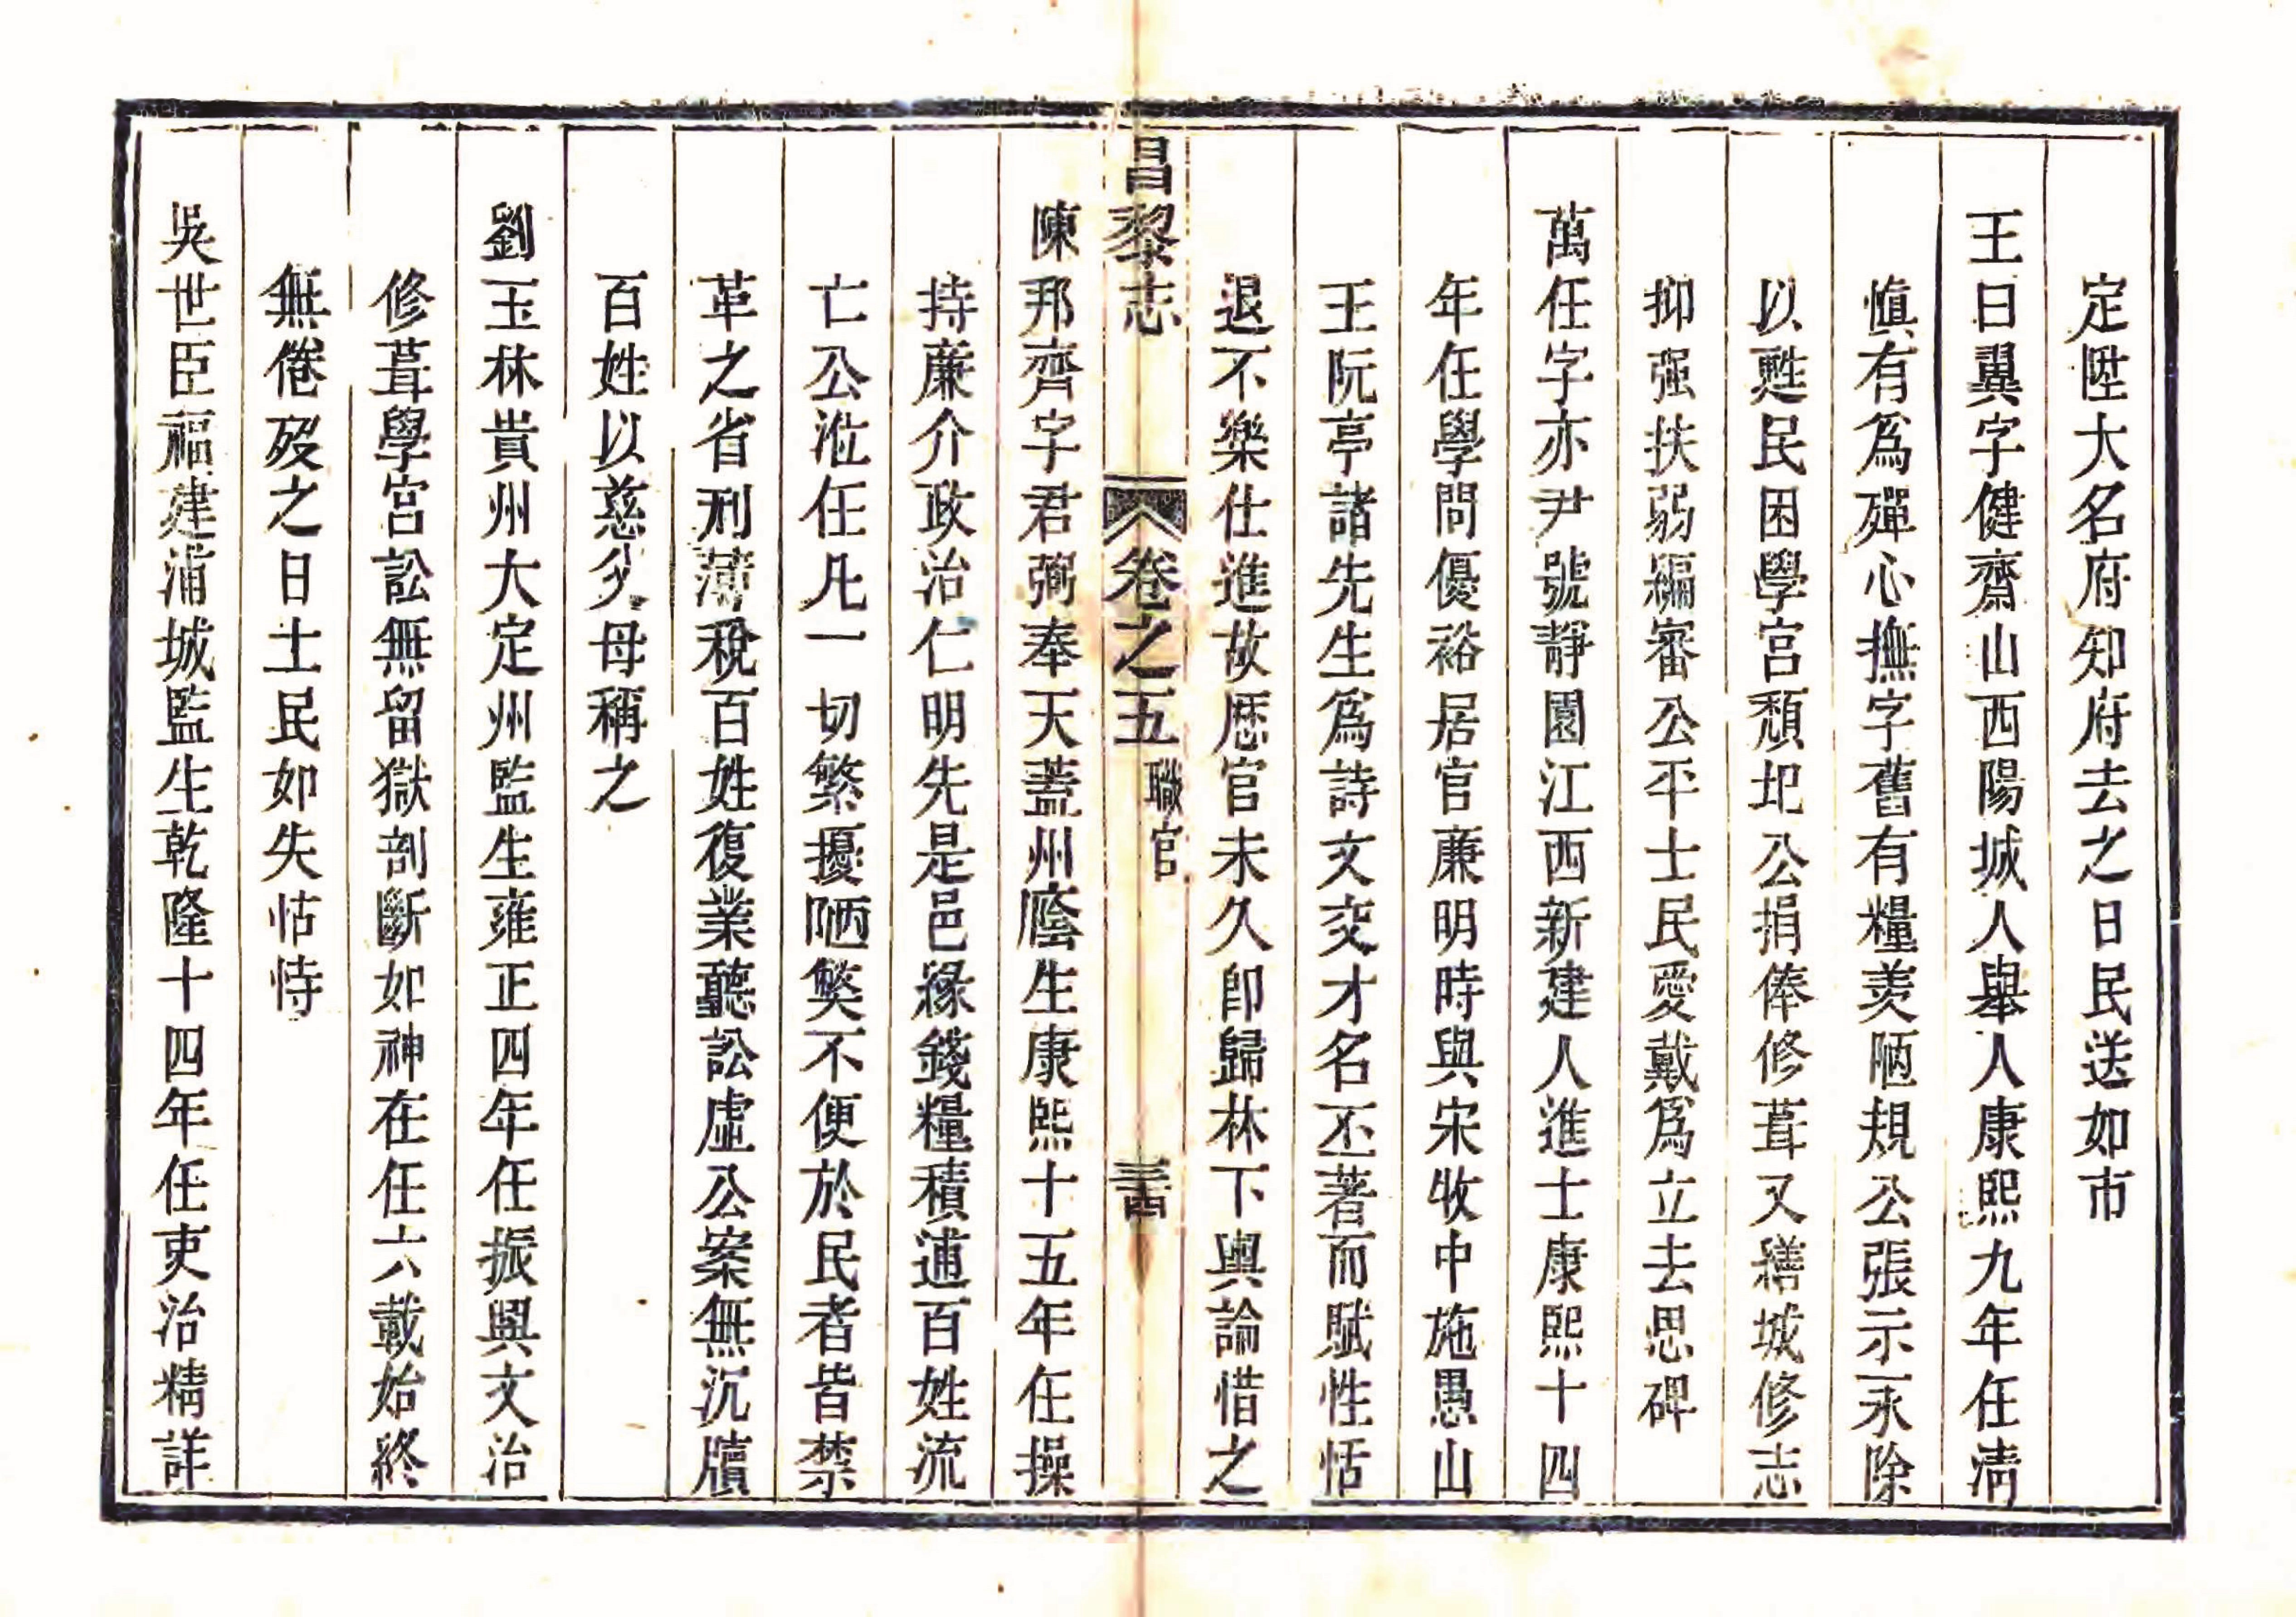 定陞大名府知府去之日民送如市
王曰翼字健齋山西陽城人舉人康熙九年任清
慎有為殫心撫字舊有糧羨陋規公張示永除
以甦民困學宮頹圯公捐俸修葺又繕城修志
抑强扶弱編審公平士民愛戴為立去思碑
萬任字亦尹號靜園江西新建人進士康熙十四
年任學問優裕居官廉明時與宋牧中施愚山
王阮亭諸先生為詩文交才名丕著而賦性恬
退不樂仕進故厯官未久卽歸林下輿論惜之
昌黎志 卷之五 職官 三四
陳邦齊字君弼奉天蓋州廕生康熙十五年任操
持廉介政治仁明先是邑緣錢糧積逋百姓流
亡公涖任凡一切繁擾陋獘不便於民者皆禁
革之省刑薄稅百姓復業聽訟虛公案無沉牘
百姓以慈父母稱之
劉玉林貴州大定州監生雍正四年任振興文治
修葺學宮訟無留獄剖斷如神在任六載始終
無倦歿之日士民如失怙恃
吳世臣福建浦城監生乾隆十四年任吏治精詳